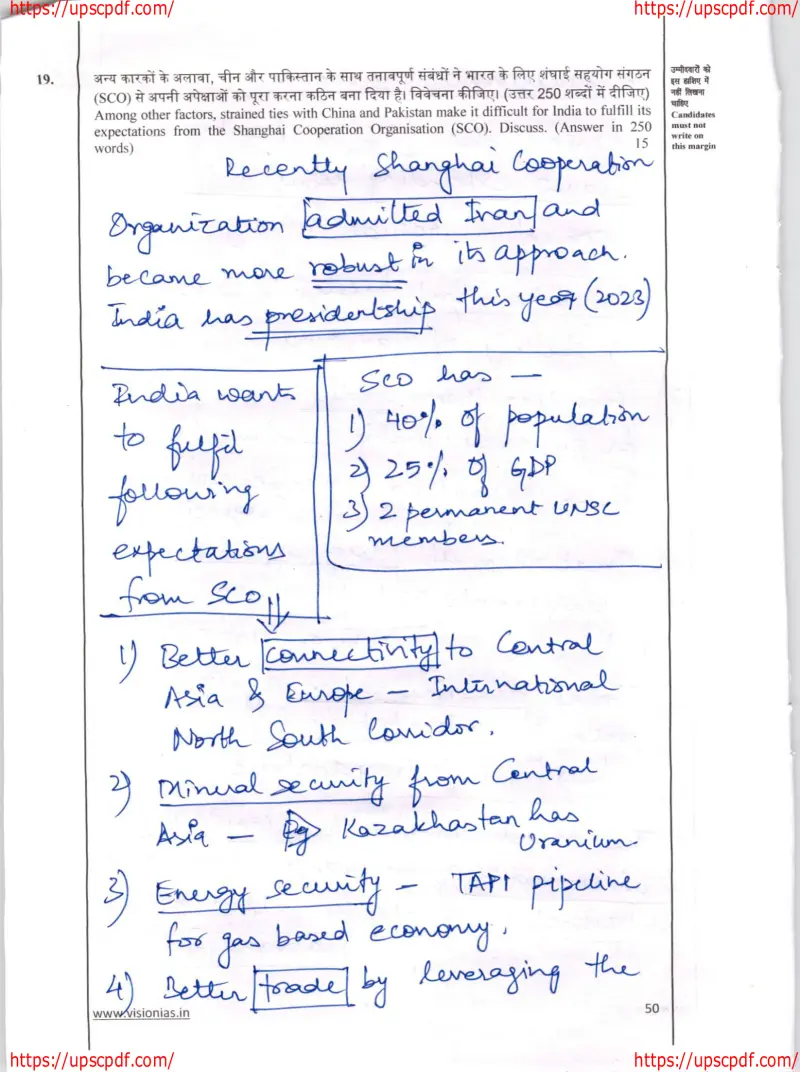 https://upscpdf.com/ https://upscpdf.com/
19. अन्य कारकों के अलावा, चीन और पाकिस्तान के साथ तनावपूर्ण संबंधों ने भारत के लिए शंघाई सहयोग संगठन
(SCO) से अपनी अपेक्षाओं को पूरा करना कठिन बना दिया है। विवेचना कीजिए। (उत्तर 250 शब्दों में दीजिए)
Among other factors, strained ties with China and Pakistan make it difficult for India to fulfill its
expectations from the Shanghai Cooperation Organisation (SCO). Discuss. (Answer in 250
words) 15
उम्मीदवारों को
इस हाशिए में
नहीं लिखना
चाहिए
Candidates
must not
write on
this margin
Recently Shanghai Cooperation
Organization admitted Iran and
became more robust in its approach.
India has presidentship this year (2023)
India wants
to fulfil
following
expectations
from SCO
SCO has —
1) 40% of population
2) 25% of GDP
3) 2 permanent UNSC
members.
1) Better connectivity to Central
Asia & Europe – International
North South Corridor.
2) Mineral security from Central
Asia – Eg Kazakhastan has
Uranium.
3) Energy security – TAPI pipeline
for gas based economy.
4) Better trade by leveraging the
www.visionias.in 50
https://upscpdf.com/ https://upscpdf.com/